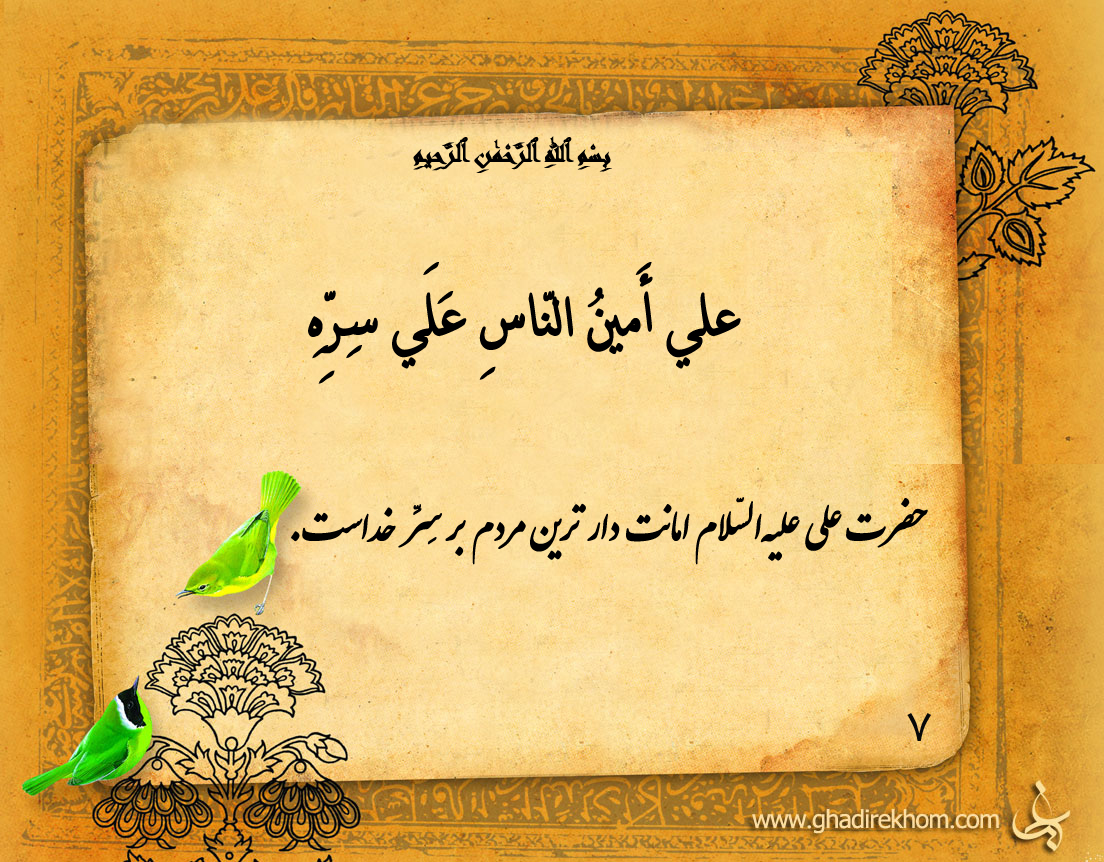 بِسْمِ ٱللَّهِ ٱلرَّحْمَٰنِ ٱلرَّحِيمِ
علي أَمينُ النّاسِ عَلَي سِرِّهِ
حضرت علی علیه السّلام امانت دار ترین مردم بر سِرّ خداست.
۷
www.ghadirekhom.com